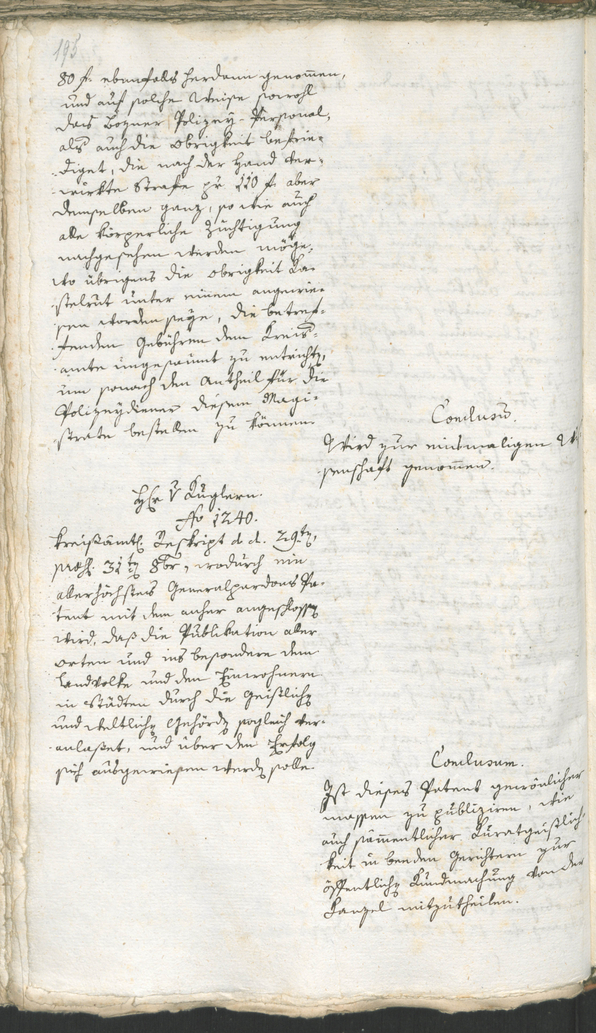 195
80 f. ebenfalls herdann genom̄en,
und auf solche Weise sowohl
das Bozner Polizey-Personal,
als auch die Obrigkeit befrie-
diget, die nach der Hand ver-
wirkte Strafe pr 110 f. aber
demselben ganz, so wie auch
alle körperliche Züchtigung
nachgesehen werden möge,
wo übrigens die Obrigkeit Ka-
stelrut unter einem angewie-
sen worden seÿe, die betref-
fenden Gebühren dem Kreis-
amte ungesäumt zu entrichtn,
um sonach den Antheil für die
Polizeydiener diesem Magi-
strate bestellen zu können.
Conclusum.
Wird zur einsmaligen
senschaft genom̄en.
H. v Kuglern.
No 1240.
Kreisämtl. Reskript d. d. 29tn,
31tn 8br, wodurch ein
allerhöchstes Generalpardons Pa-
tent mit dem anher angeschlossn
wird, daß die Publikation aller
Orten und ins besondere dem
Landvolke und den Einwohnern
in Städten durch die Geistlichn
und weltlichn Behördn sogleich ver-
anlaßet, und über den Erfolg
sich ausgewiesen werdn solle.
Conclusum.
Ist dieses Patent gewönlicher
massen zu publiziren, wie
auch sämmentlicher Kuratgeistlich
keit in beeden Gerichtern zur
öffentlichn Kundmachung von der
Kanzel mitzutheilen.